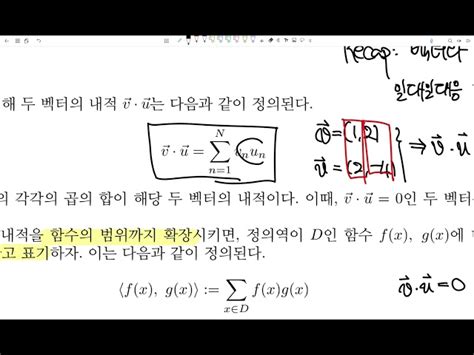 Recap:
일대일대응
해 두 벡터의 내적 $\vec{v} \cdot \vec{u}$는 다음과 같이 정의된다.
$\vec{v} \cdot \vec{u} = \sum_{n=1}^{N} v_n u_n$
$\vec{v} = (1, 2)$
$\vec{u} = (2, -4)$
$\Rightarrow \vec{v} \cdot \vec{u}$
의 각각의 곱의 합이 해당 두 벡터의 내적이다. 이때, $\vec{v} \cdot \vec{u} = 0$인 두 벡터
내적을 함수의 범위까지 확장시키면, 정의역이 $D$인 함수 $f(x)$, $g(x)$에
고 표기하자. 이는 다음과 같이 정의된다.
$\langle f(x), g(x) \rangle := \sum_{x \in D} f(x)g(x)$
$\vec{v} \cdot \vec{u} = 0$